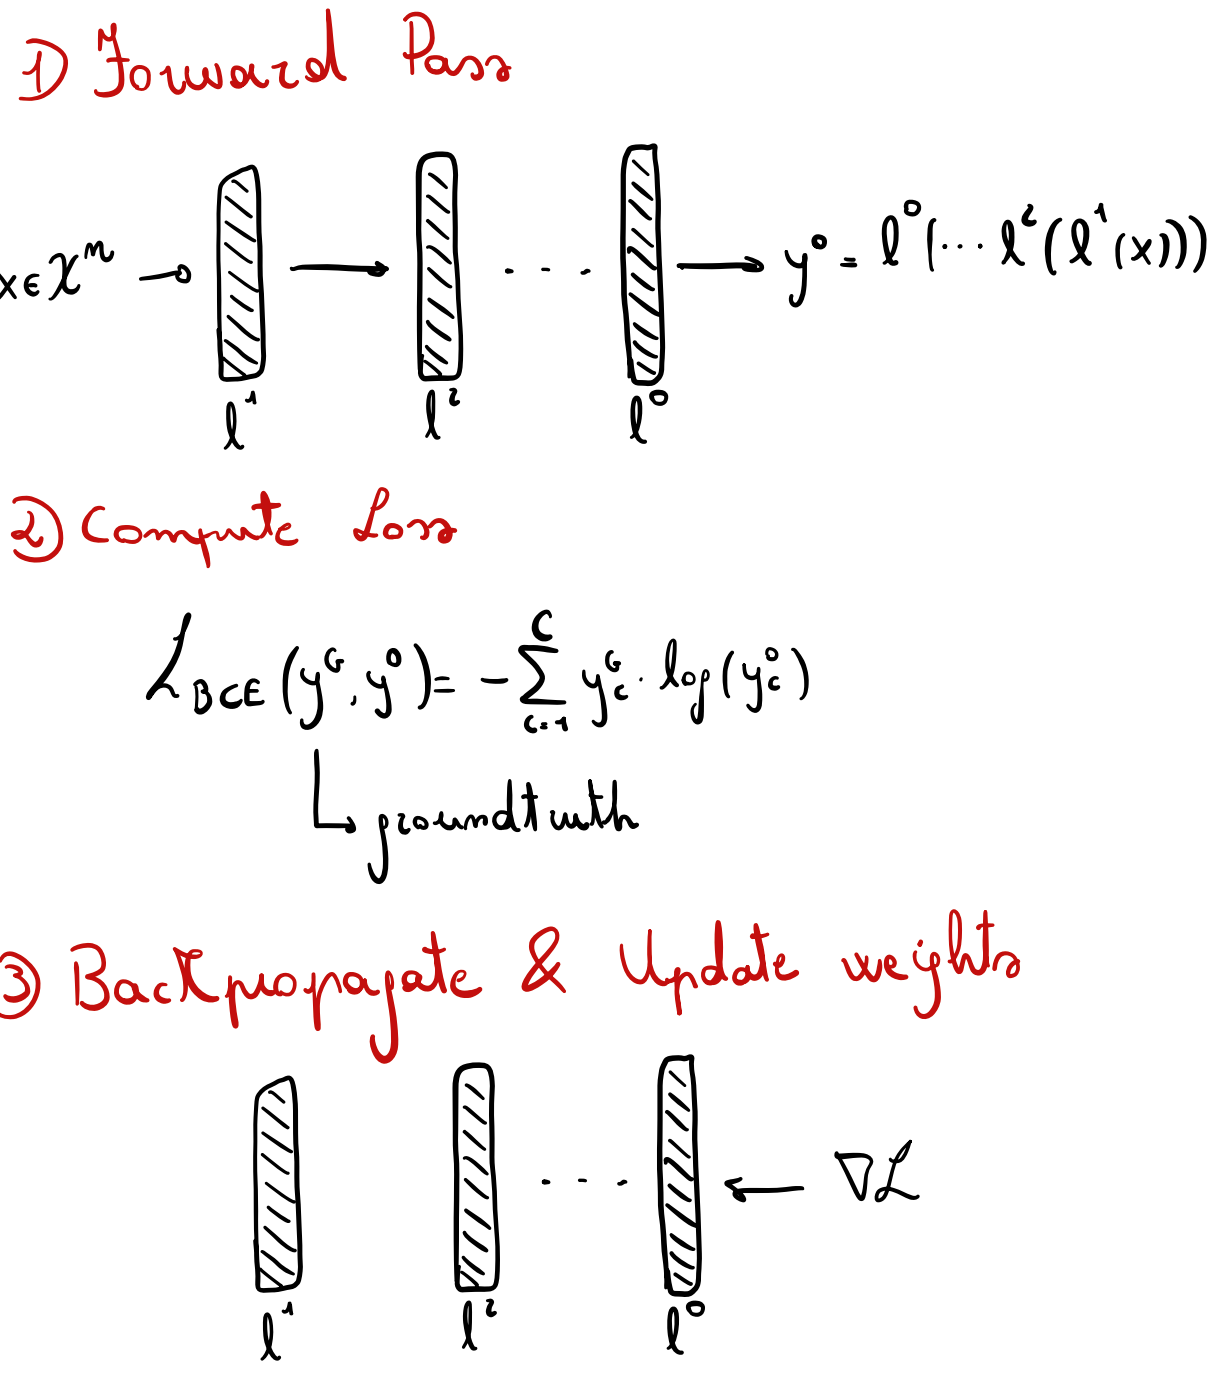 1) Forward Pass
x ∈ X^n → → ... → y^o = l^o(... l^2(l^1(x)))
l^1 l^2 l^o
2) Compute Loss
L_BCE (y^G, y^o) = - ∑_{c=1}^{C} y_c^G · log(y_c^o)
groundtruth
3) Backpropagate & Update weights
... ← ∇L
l^1 l^2 l^o